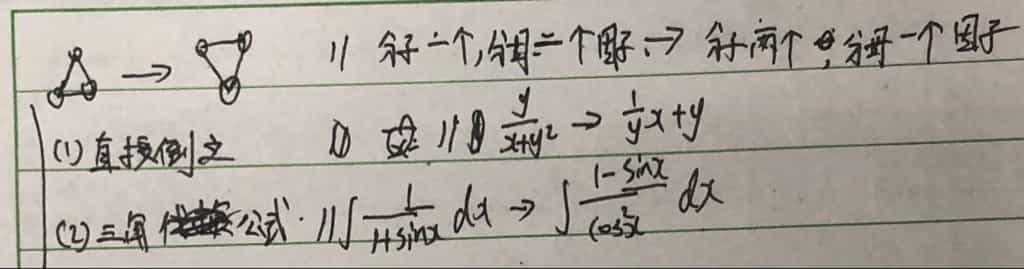 → // 分子一个,分母二个因子 → 分子两个,分母一个因子
(1) 直接倒之 ① // y/(x+y²) → 1/y x+y
(2) 三角公式. // ∫ 1/(1+sinx) dx → ∫ (1-sinx)/(cos²x) dx